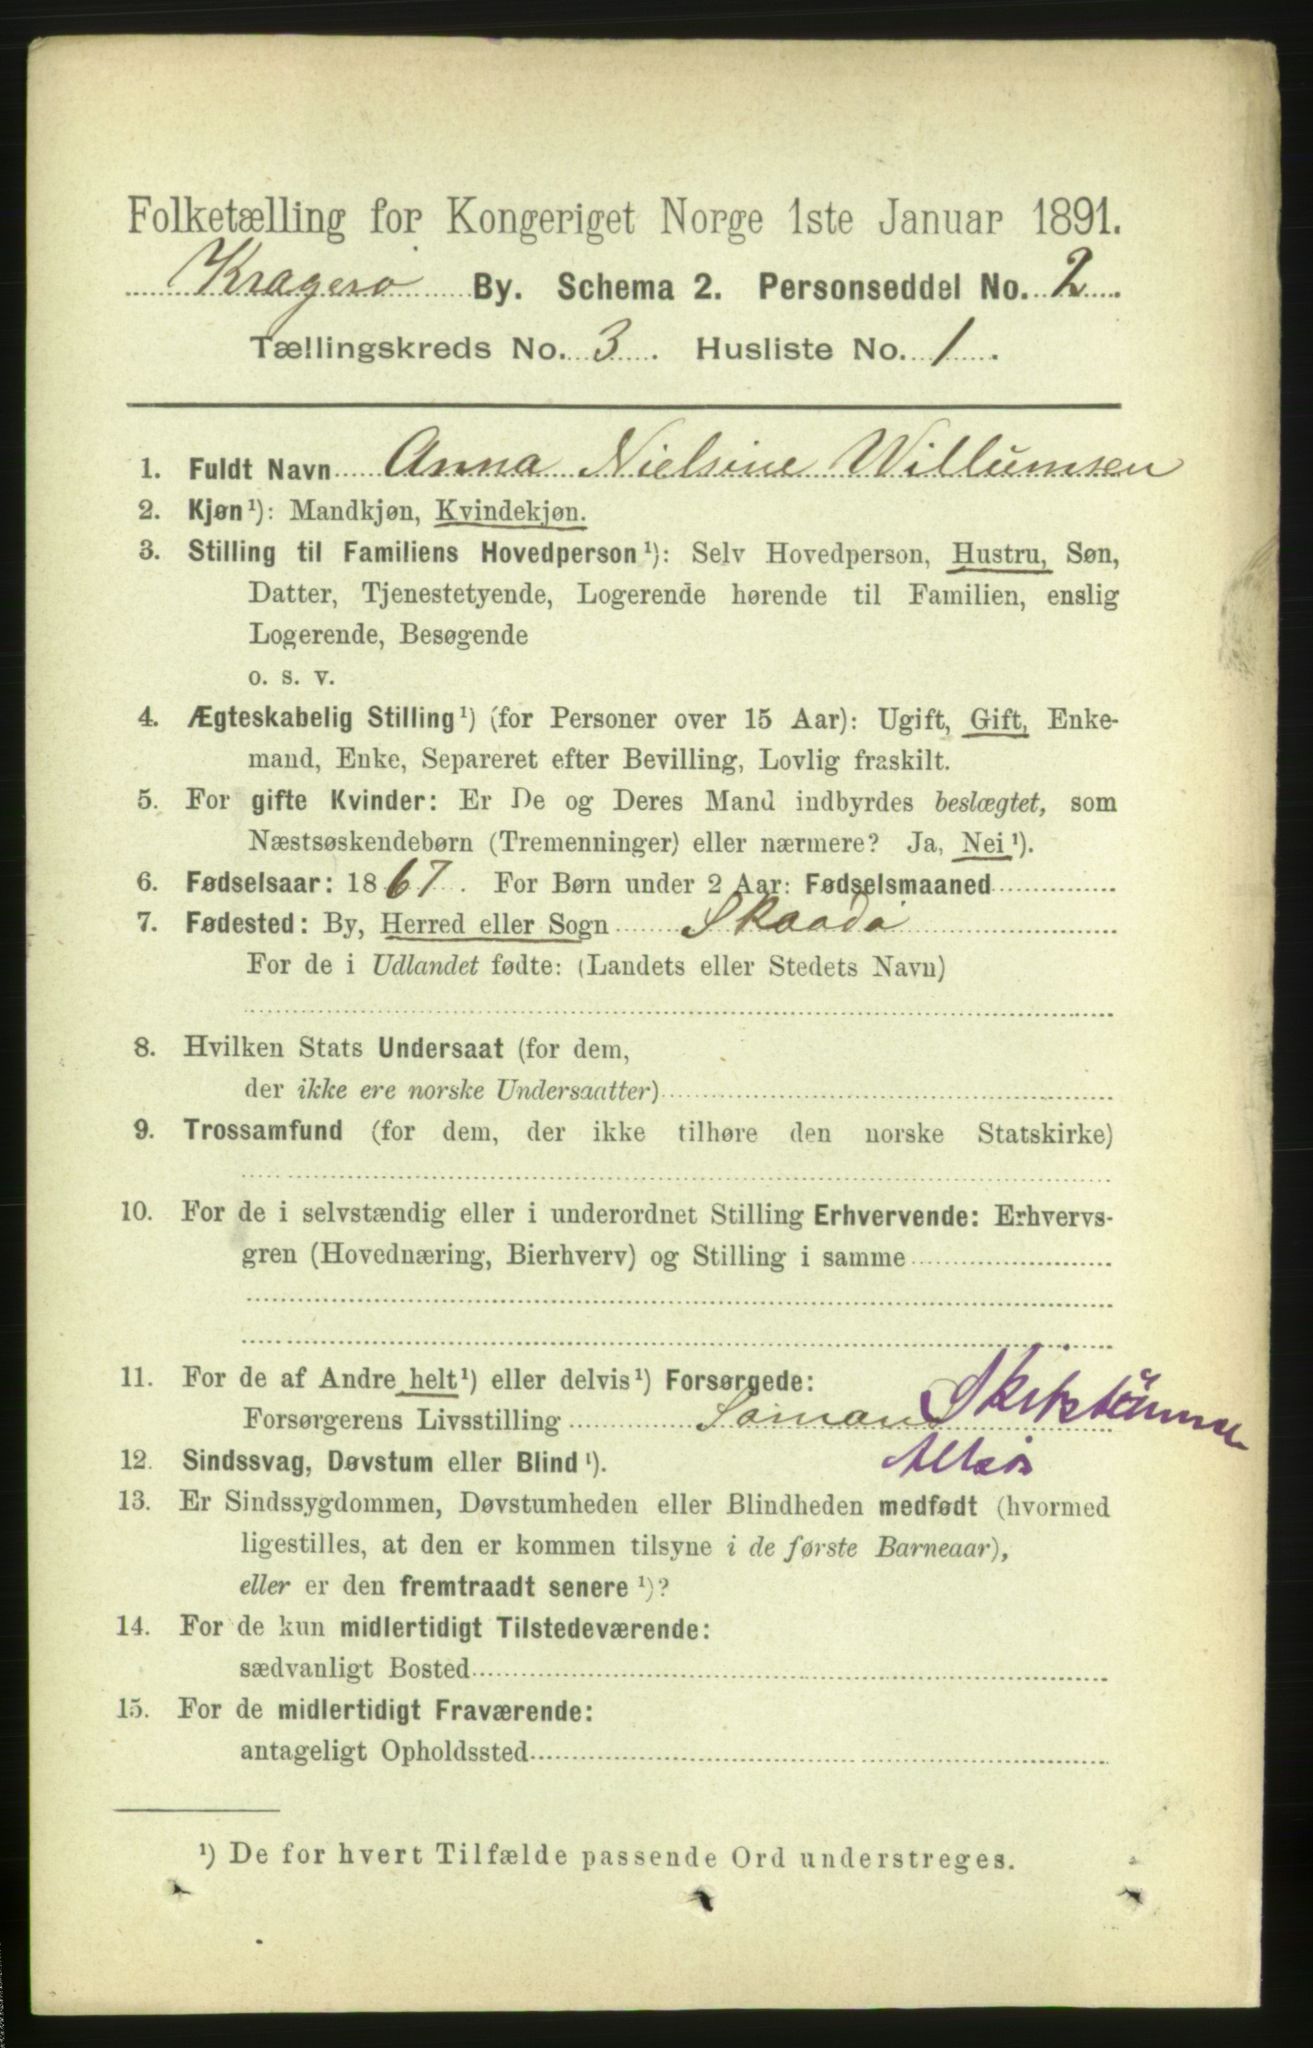 Folketælling for Kongeriget Norge 1ste Januar 1891.
Kragerø By. Schema 2. Personseddel No. 2.
Tællingskreds No. 3. Husliste No. 1.
1. Fuldt Navn Anna Nielsine Willumsen
2. Kjøn ¹): Mandkjøn, Kvindekjøn.
3. Stilling til Familiens Hovedperson ¹): Selv Hovedperson, Hustru, Søn,
Datter, Tjenestetyende, Logerende hørende til Familien, enslig
Logerende, Besøgende
o. s. v.
4. Ægteskabelig Stilling ¹) (for Personer over 15 Aar): Ugift, Gift, Enke-
mand, Enke, Separeret efter Bevilling, Lovlig fraskilt.
5. For gifte Kvinder: Er De og Deres Mand indbyrdes beslægtet, som
Næstsøskendebørn (Tremenninger) eller nærmere? Ja, Nei ¹).
6. Fødselsaar: 1867. For Børn under 2 Aar: Fødselsmaaned
7. Fødested: By, Herred eller Sogn Skaadø
For de i Udlandet fødte: (Landets eller Stedets Navn)
8. Hvilken Stats Undersaat (for dem,
der ikke ere norske Undersaatter)
9. Trossamfund (for dem, der ikke tilhøre den norske Statskirke)
10. For de i selvstændig eller i underordnet Stilling Erhvervende: Erhvervs-
gren (Hovednæring, Bierhverv) og Stilling i samme
11. For de af Andre helt ¹) eller delvis ¹) Forsørgede:
Forsørgerens Livsstilling Sømand
12. Sindssvag, Døvstum eller Blind ¹).
13. Er Sindssygdommen, Døvstumheden eller Blindheden medfødt (hvormed
ligestilles, at den er kommen tilsyne i de første Barneaar),
eller er den fremtraadt senere ¹)?
14. For de kun midlertidigt Tilstedeværende:
sædvanligt Bosted
15. For de midlertidigt Fraværende:
antageligt Opholdssted
¹) De for hvert Tilfælde passende Ord understreges.